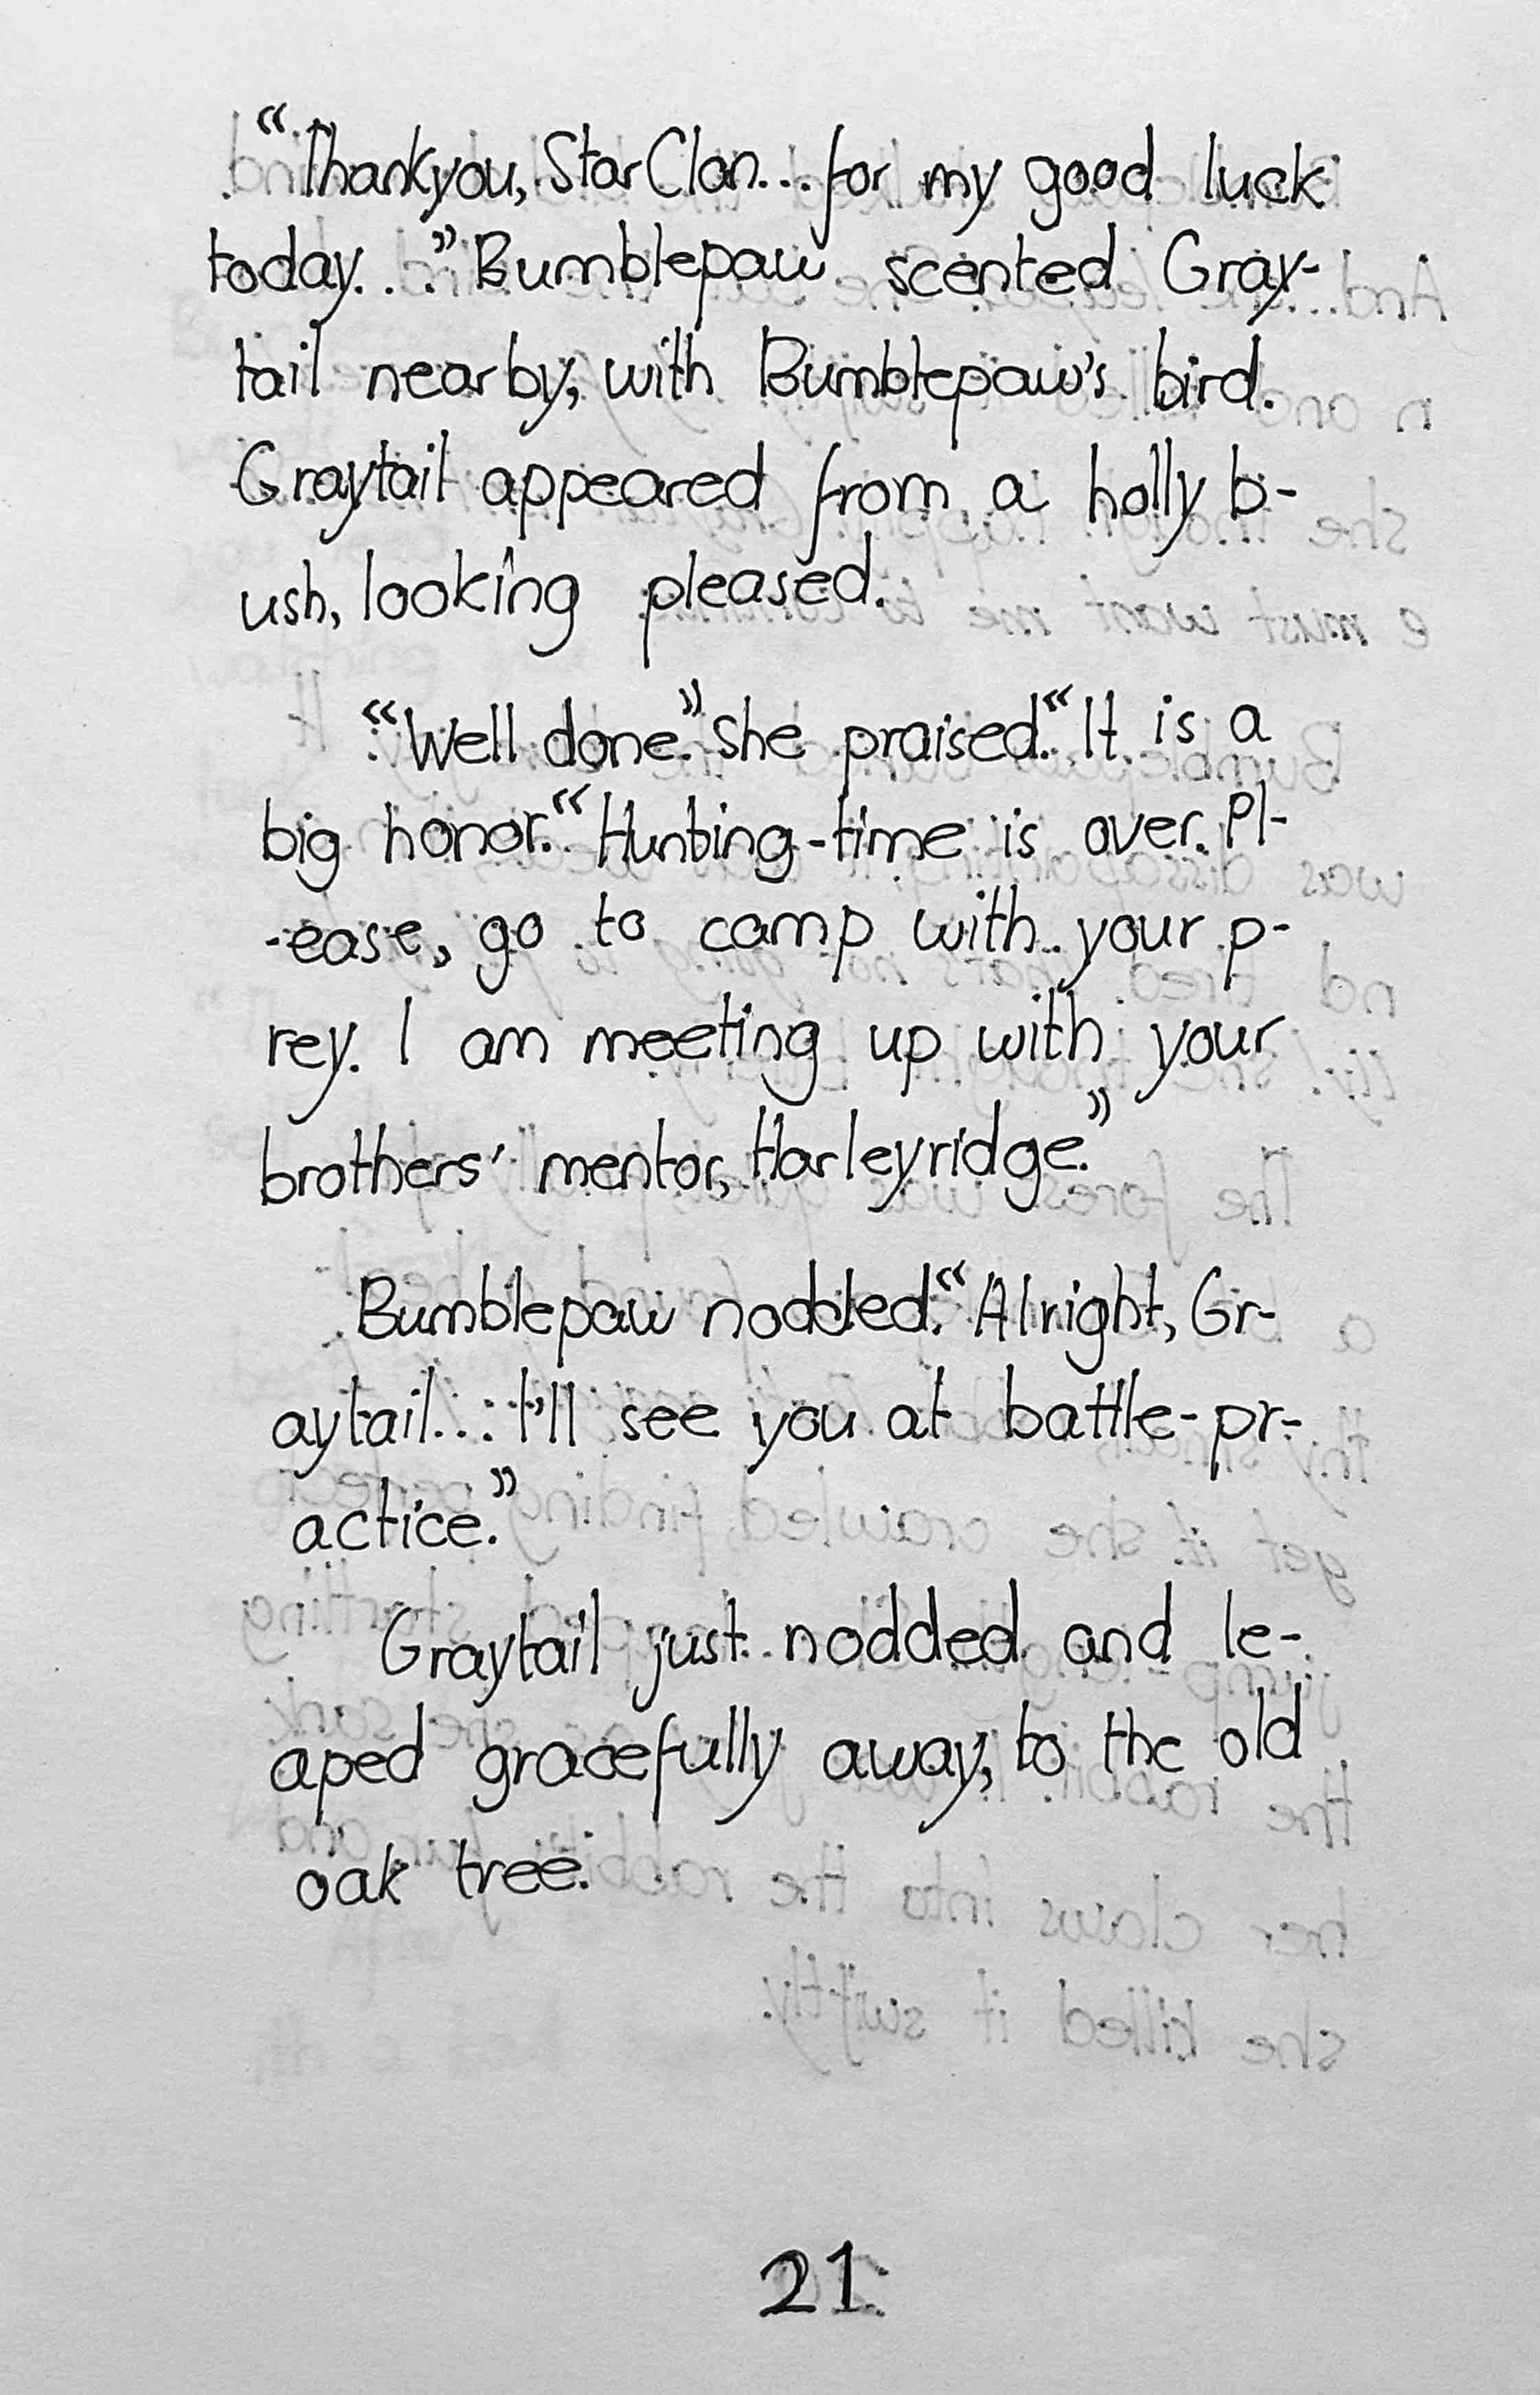 “Thankyou, StarClan... for my good luck
today...” Bumblepaw scented Gray-
tail nearby, with Bumblepaw's bird.
Graytail appeared from a holly b-
ush, looking pleased.
“Well done.” she praised. “It is a
big honor. “Hunting-time is over. Pl-
-ease, go to camp with your p-
rey. I am meeting up with your
brothers' mentor, Harleyridge.”
Bumblepaw nodded. “Alright, Gr-
aytail... I'll see you at battle-pr-
actice.”
Graytail just nodded and le-
aped gracefully away, to the old
oak tree.
21